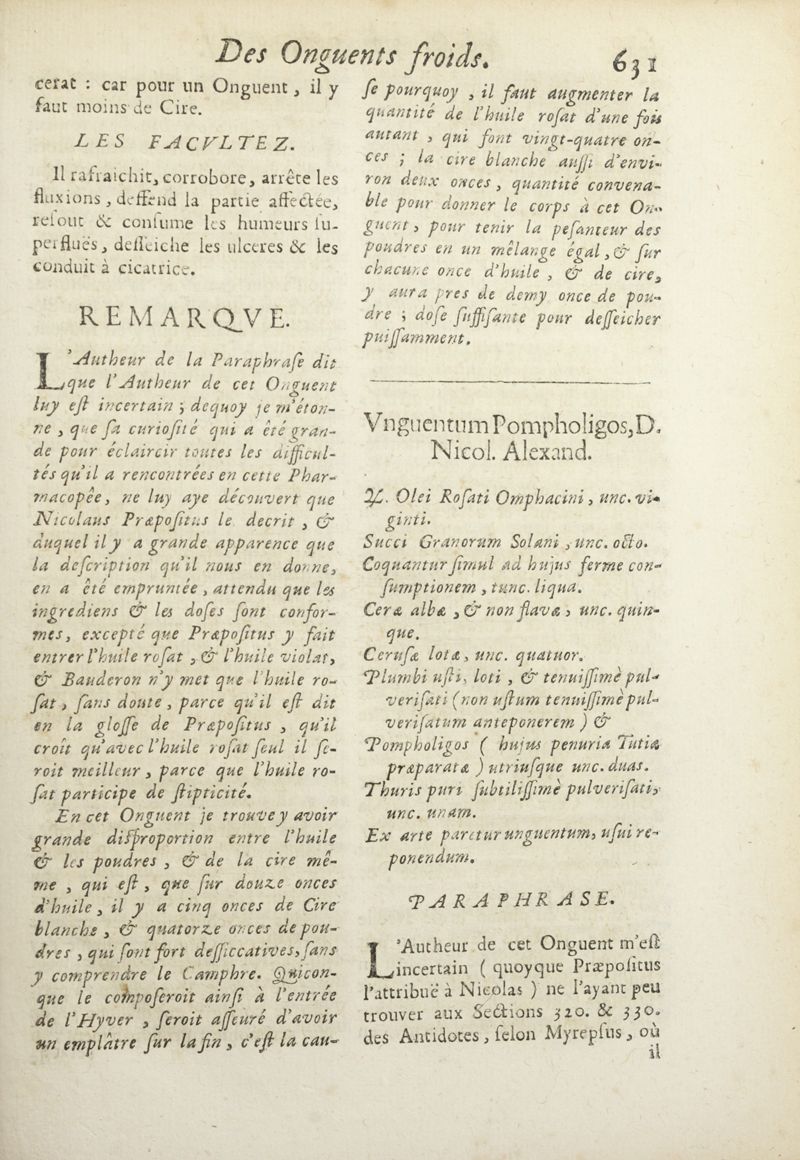 Des Onguents froids. 631
cerat : car pour un Onguent, il y
faut moins de Cire.
LES FACVLTEZ.
Il rafraichit, corrobore, arrête les
fluxions, deffend la partie affectée,
resout & consume les humeurs su-
perfluës, desseiche les ulceres & les
conduit à cicatrice.
REMARQVE.
L'Autheur de la Paraphrase dit
que l'Autheur de cet Onguent
luy est incertain ; dequoy je m'éton-
ne, que sa curiosité qui a été gran-
de pour éclaircir toutes les difficul-
tés qu'il a rencontrées en cette Phar-
macopée, ne luy aye découvert que
Nicolaus Præpositus le decrit, &
duquel il y a grande apparence que
la description qu'il nous en donne,
en a été empruntée, attendu que les
ingrediens & les doses sont confor-
mes, excepté que Præpositus y fait
entrer l'huile rosat, & l'huile violat,
& Bauderon n'y met que l'huile ro-
sat, sans doute, parce qu'il est dit
en la glosse de Præpositus, qu'il
croit qu'avec l'huile rosat seul il se-
roit meilleur, parce que l'huile ro-
sat participe de stipticité.
En cet Onguent je trouve y avoir
grande disproportion entre l'huile
& les poudres, & de la cire mê-
me, qui est, que sur douze onces
d'huile, il y a cinq onces de Cire
blanche, & quatorze onces de pou-
dres, qui sont fort dessiccatives, sans
y comprendre le Camphre. Quicon-
que le composeroit ainsi à l'entrée
de l'Hyver, seroit asseuré d'avoir
un emplâtre sur la fin, c'est la cau-
se pourquoy, il faut augmenter la
quantité de l'huile rosat d'une fois
autant, qui font vingt-quatre on-
ces ; la cire blanche aussi d'envi-
ron deux onces, quantité convena-
ble pour donner le corps à cet On-
guent, pour tenir la pesanteur des
poudres en un mêlange égal, & sur
chacune once d'huile, & de cire,
y aura pres de demy once de pou-
dre ; dose suffisante pour desseicher
puissamment.
VnguentumPompholigos, D.
Nicol. Alexand.
℞. Olei Rosati Omphacini, unc. vi-
ginti.
Succi Granorum Solani, unc. octo.
Coquantur simul ad hujus ferme con-
sumptionem, tunc. liqua.
Ceræ albæ, & non flavæ, unc. quin-
que.
Cerusæ lotæ, unc. quatuor.
Plumbi usti, loti, & tenuissimè pul-
verisati (non ustum tenuissimè pul-
verisatum anteponerem) &
Pompholigos ( hujus penuria Tutia
præparatæ ) utriusque unc. duas.
Thuris puri subtilissimè pulverisati,
unc. unam.
Ex arte paretur unguentum, usui re-
ponendum.
PARAPHRASE.
L'Autheur de cet Onguent m'est
incertain ( quoyque Præpositus
l'attribuë à Nicolas ) ne l'ayant peu
trouver aux Sections 320. & 330.
des Antidotes, selon Myrepsus, où
il